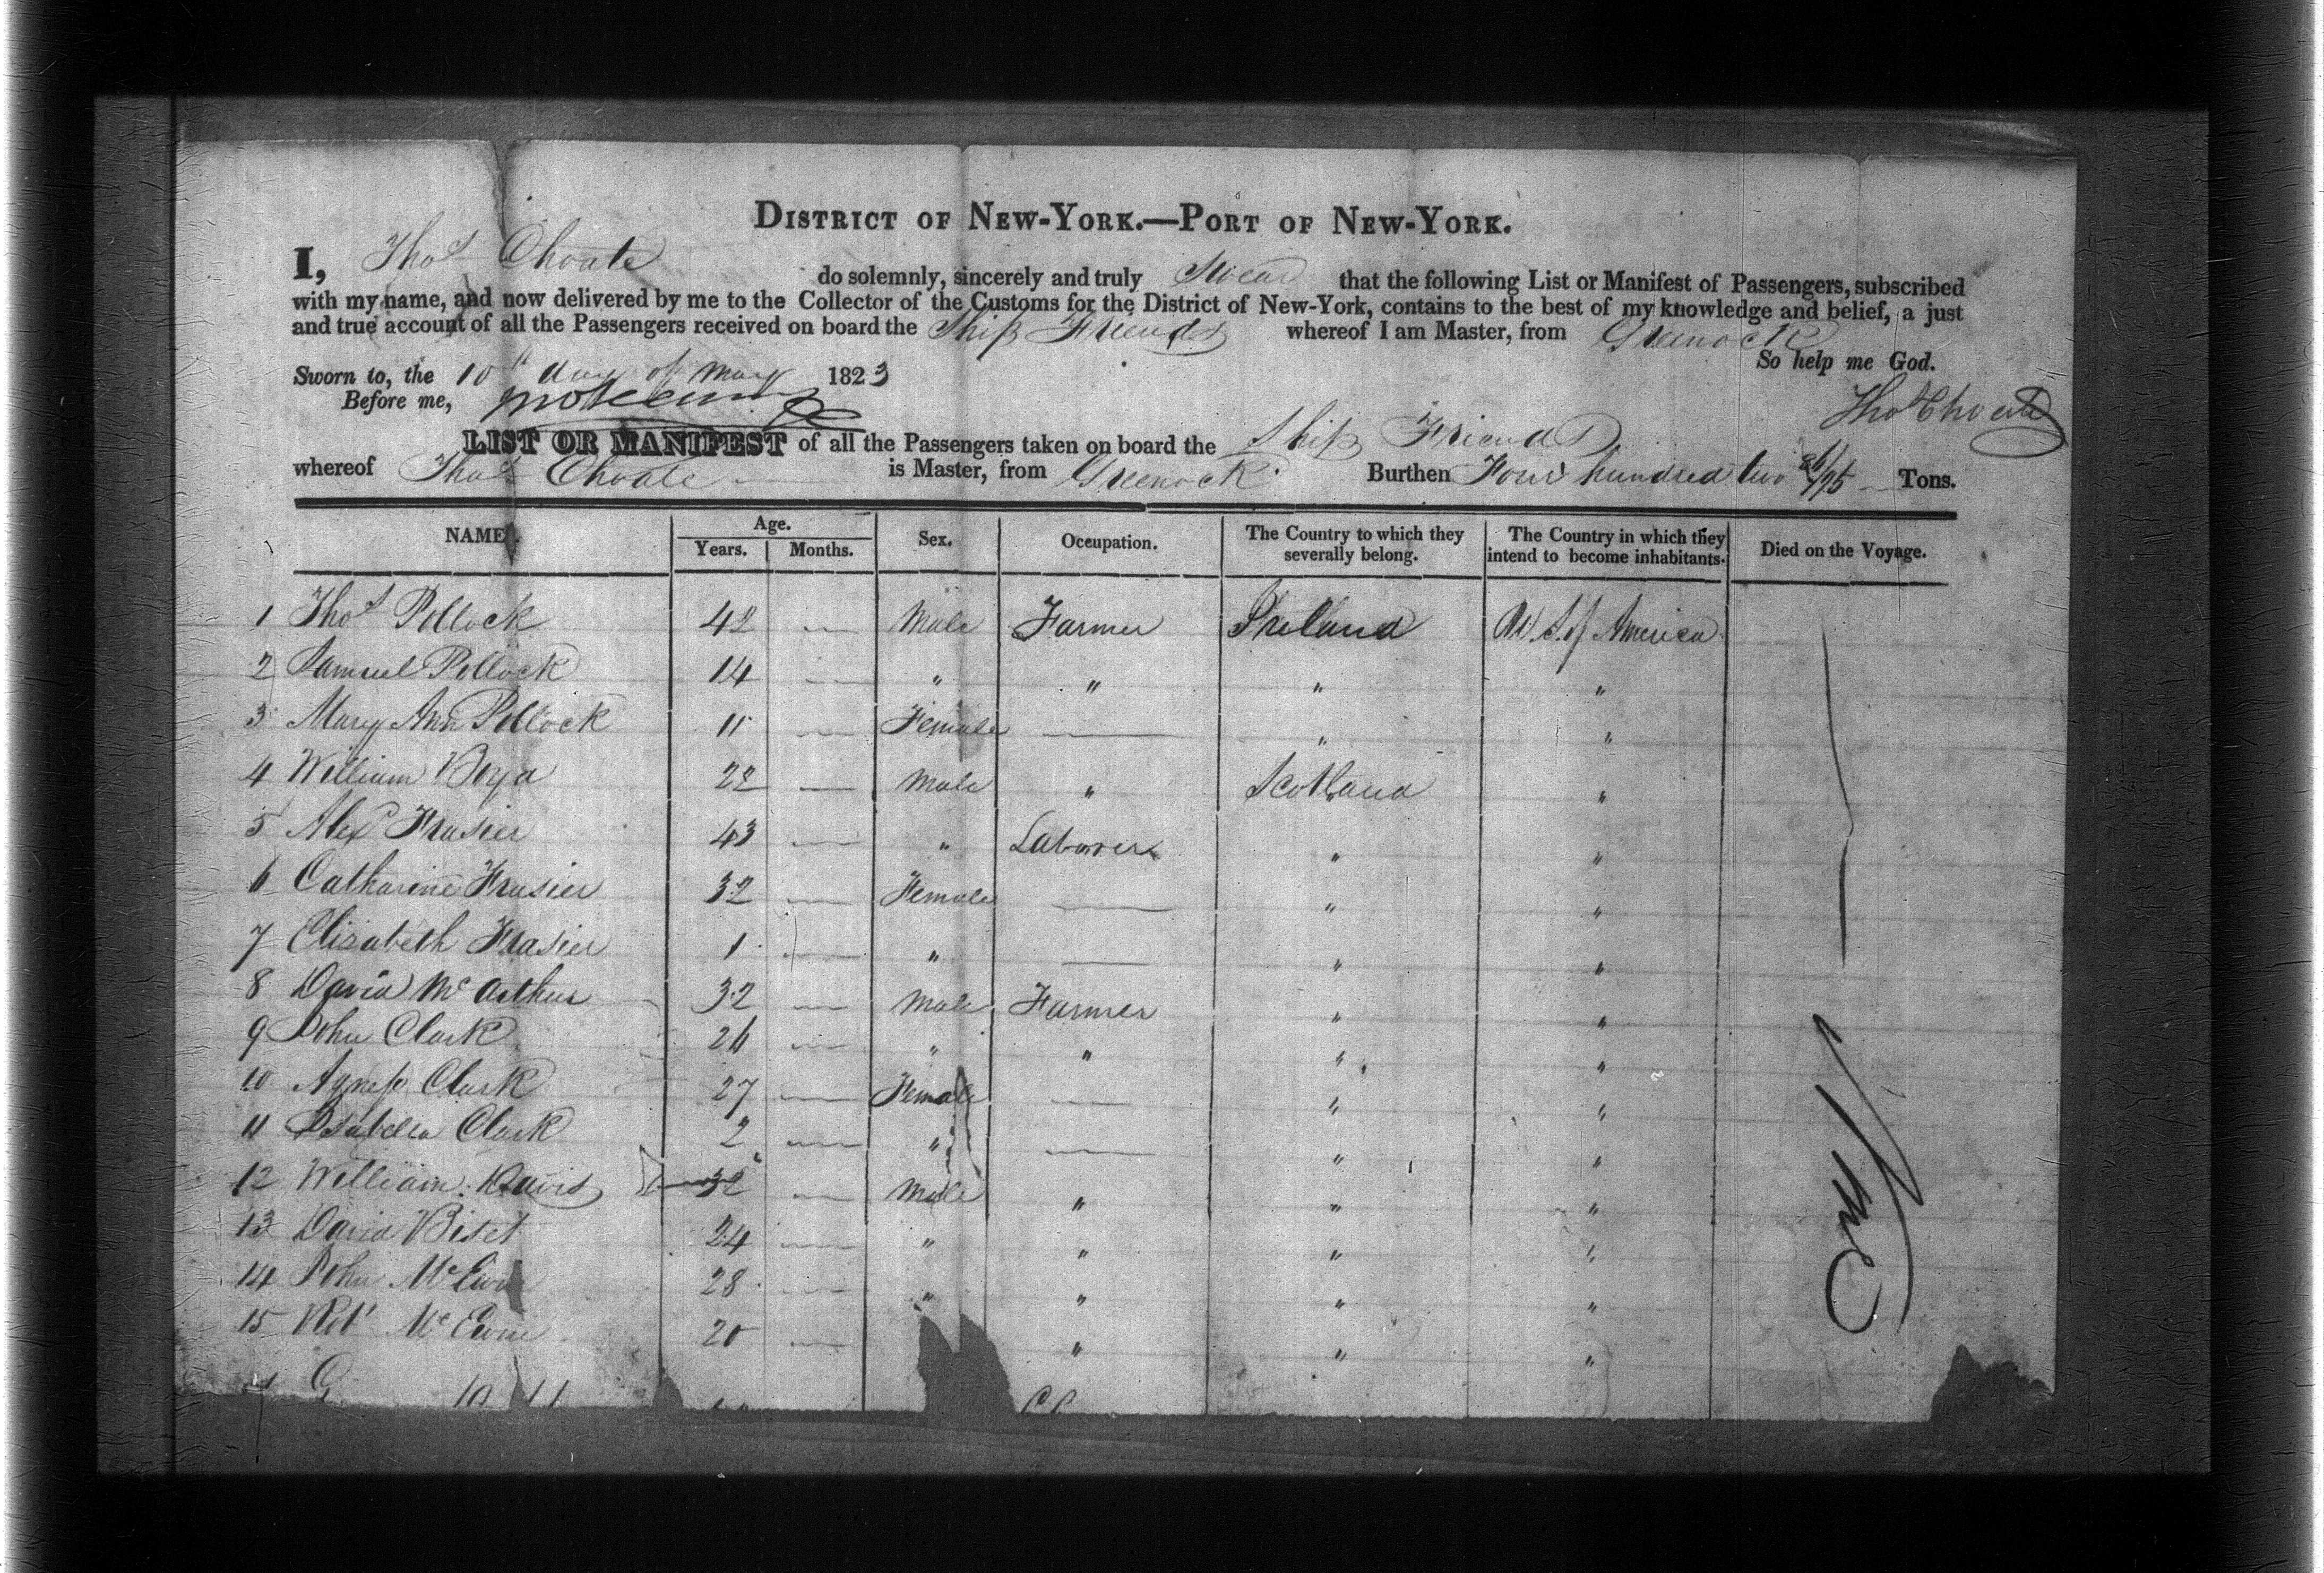 DISTRICT OF NEW-YORK.—PORT OF NEW-YORK.
I, Thos Choate do solemnly, sincerely and truly Swear that the following List or Manifest of Passengers, subscribed
with my name, and now delivered by me to the Collector of the Customs for the District of New-York, contains to the best of my knowledge and belief, a just
and true account of all the Passengers received on board the Ship Friends whereof I am Master, from Greenock
So help me God.
Sworn to, the 10th day of May 1823
Before me,
Thos Choate
LIST OR MANIFEST of all the Passengers taken on board the Ship Friends
whereof Thos Choate is Master, from Greenock Burthen Four hundred two /95 Tons.
NAME. Age. Years. Months. Sex. Occupation. The Country to which they severally belong. The Country in which they intend to become inhabitants. Died on the Voyage.
1 Thos Pollock 42 — Male Farmer Ireland U. S. of America
2 Samuel Pollock 14 — " " " "
3 Mary Ann Pollock 11 — Female — " "
4 William 22 — Male " Scotland "
5 Alexr Frasier 43 — " Laborer " "
6 Catharine Frasier 32 — Female — " "
7 Elizabeth Frasier 1 — " — " "
8 David McArthur 32 — Male Farmer " "
9 John Clark 26 — " " " "
10 Agness Clark 27 — Female — " "
11 Isabella Clark 2 — " — " "
12 William Davis 32 — Male " " "
13 David Biset 24 — " " " "
14 John McEwn 28 — " " " "
15 Robt McEwn 20 — " " "